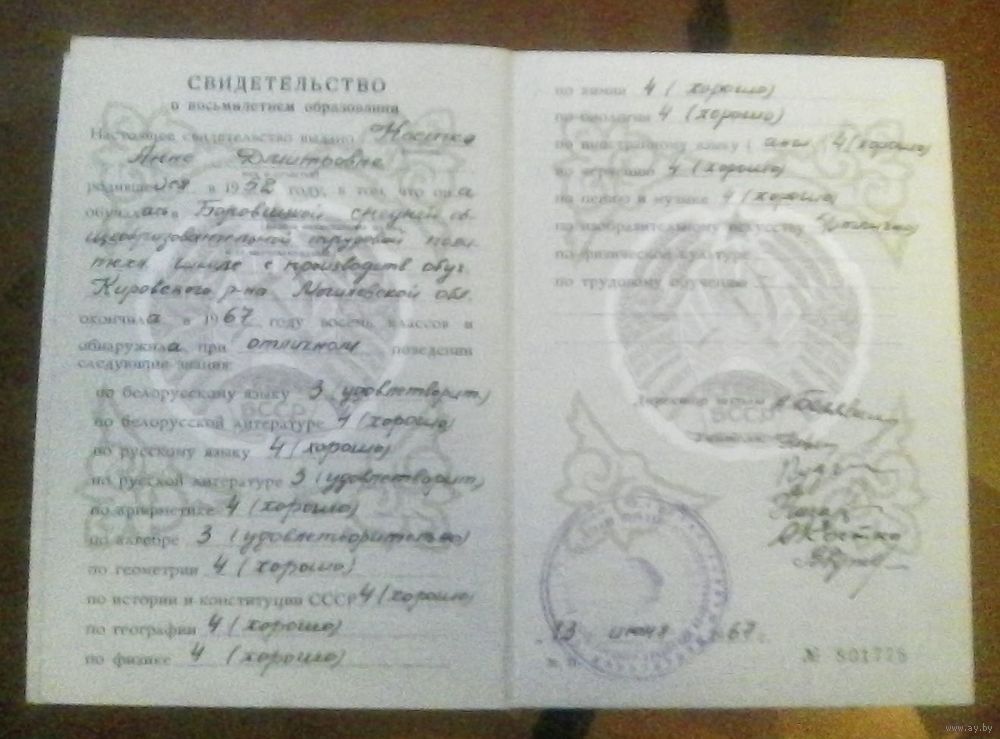 СВИДЕТЕЛЬСТВО
о восьмилетнем образовании
Настоящее свидетельство выдано Костко
Анне Дмитровне
родившейся в 1952 году, в том, что она
обучалась в средней об-
щеобразовательной трудовой поли-
техн. школе с производств обуч.
Кировского р-на Могилевской обл.
окончила в 1967 году восемь классов и
обнаружила при отличном поведении
следующие знания:
по белорусскому языку 3 (удовлетворит)
по белорусской литературе 4 (хорошо)
по русскому языку 4 (хорошо)
по русской литературе 3 (удовлетворит)
по арифметике 4 (хорошо)
по алгебре 3 (удовлетворительно)
по геометрии 4 (хорошо)
по истории и конституции СССР 4 (хорошо)
по географии 4 (хорошо)
по физике 4 (хорошо)
БССР
по химии 4 (хорошо)
по биологии 4 (хорошо)
по иностранному языку (англ. 4 (хорошо)
по черчению 4 (хорошо)
по пению и музыке 4 (хорошо)
по изобразительному искусству
по физической культуре
по трудовому обучению
Директор школы
БССР
Учителя:
13 июня 67 г.
м. п.
№ 801778
www.ay.by